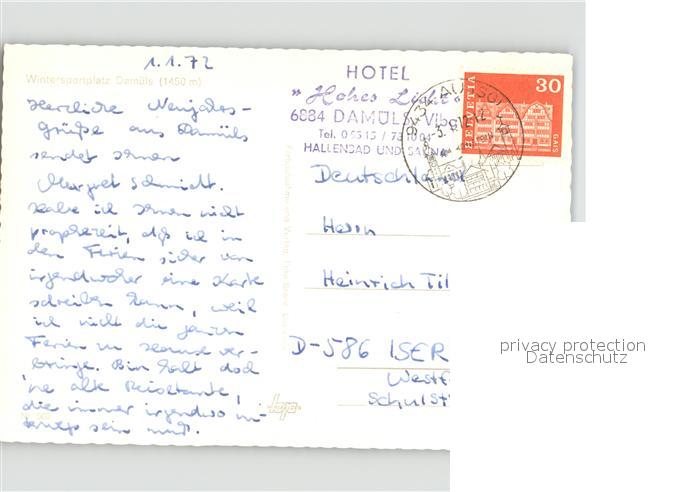 1.1.72
Wintersportplatz Damüls (1450 m)
Herzliche Neujahrs-
grüße aus Damüls
sendet Ihnen
Margret Schmidt.
Habe ich Ihnen nicht
prophezeit, daß ich in
den Ferien sicher von
irgendwoher eine Karte
schreiben kann, weil
ich nicht die ganzen
Ferien zu Hause ver-
bringe. Bin halt doch
'ne alte Reisetante,
die immer irgendwo un-
terwegs sein muß.
HOTEL
"Hohes Licht"
6884 DAMÜLS, Vlbg
Tel. 05515 /
HALLENBAD UND SAUNA
HELVETIA
30
GAIS
Deutschland
Herrn
Heinrich Til
D-586 ISER
Westf
Schulst
privacy protection
Datenschutz